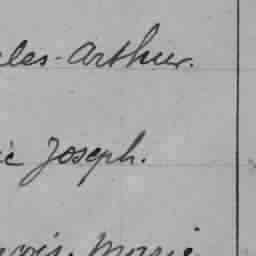 les-Arthur.
Joseph.
Marie